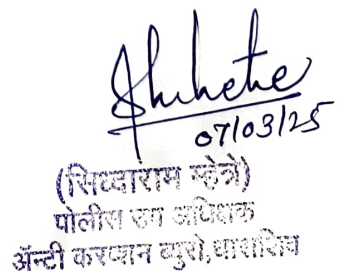 07/03/25
(सिध्दाराम म्हेत्रे)
पोलीस उप अधिक्षक
ॲन्टी करप्शन ब्युरो,धाराशिव